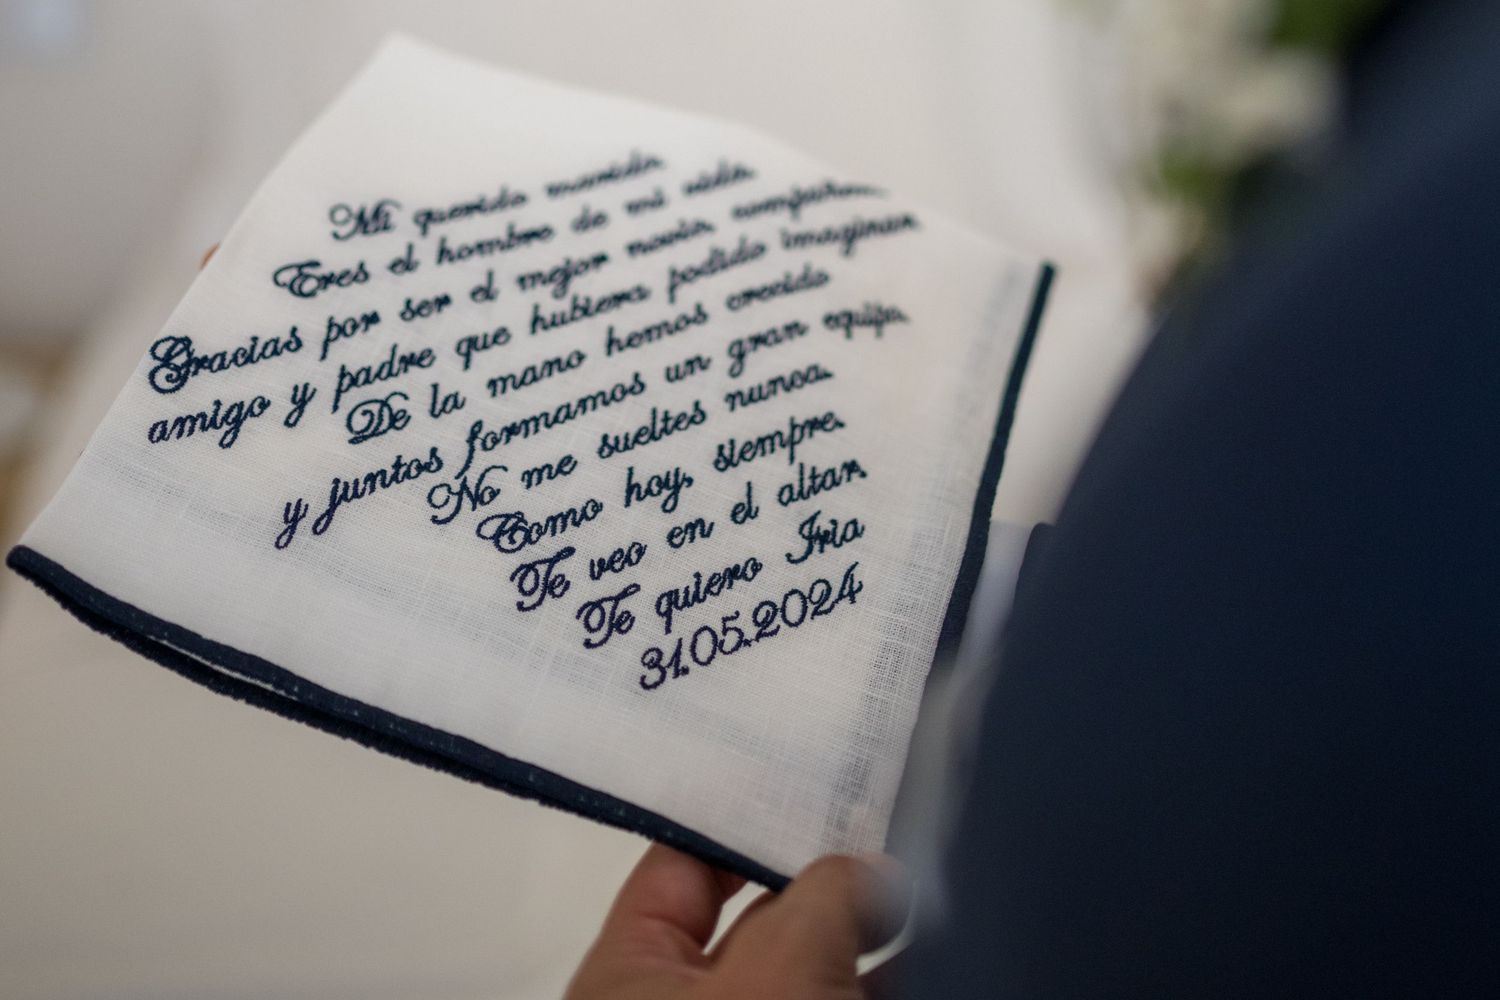 Mi querido marido.
Eres el hombre de mi vida.
Gracias por ser el mejor novio, compañero,
amigo y padre que hubiera podido imaginar.
De la mano hemos crecido
y juntos formamos un gran equipo.
No me sueltes nunca.
Como hoy, siempre.
Te veo en el altar.
Te quiero Iria
31.05.2024